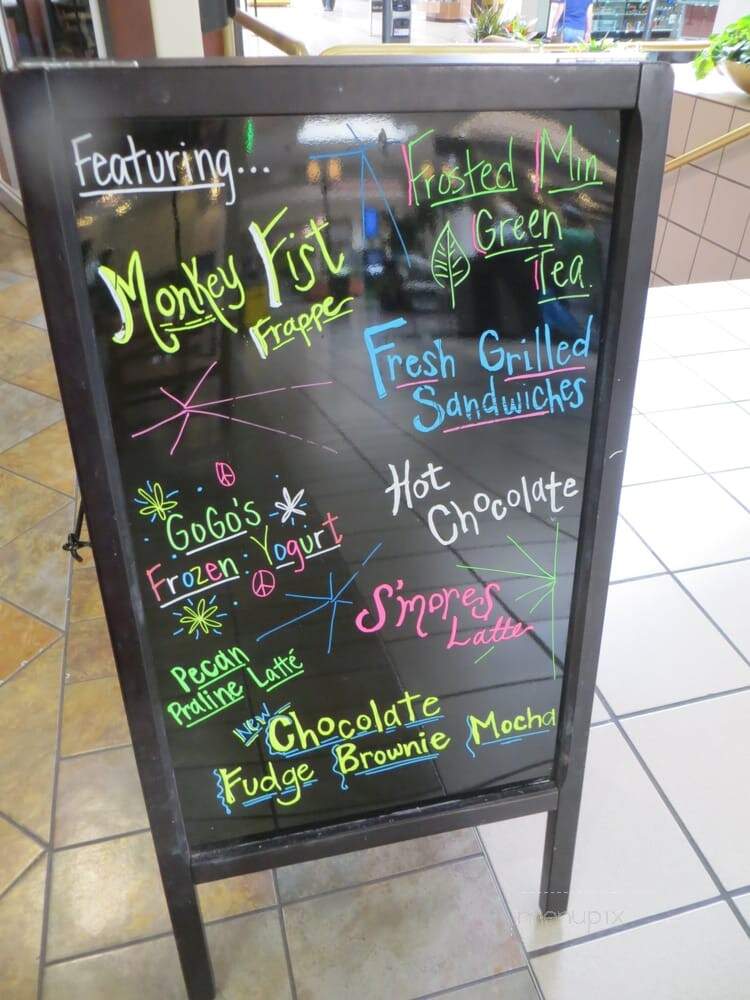 Featuring...
Monkey Fist
Frappe
Frosted Min
Green
Tea.
Fresh Grilled
Sandwiches
GoGo's
Frozen Yogurt
Hot
Chocolate
S'mores
Latte
Pecan
Praline Latté
New Chocolate
Fudge Brownie Mocha
menupix